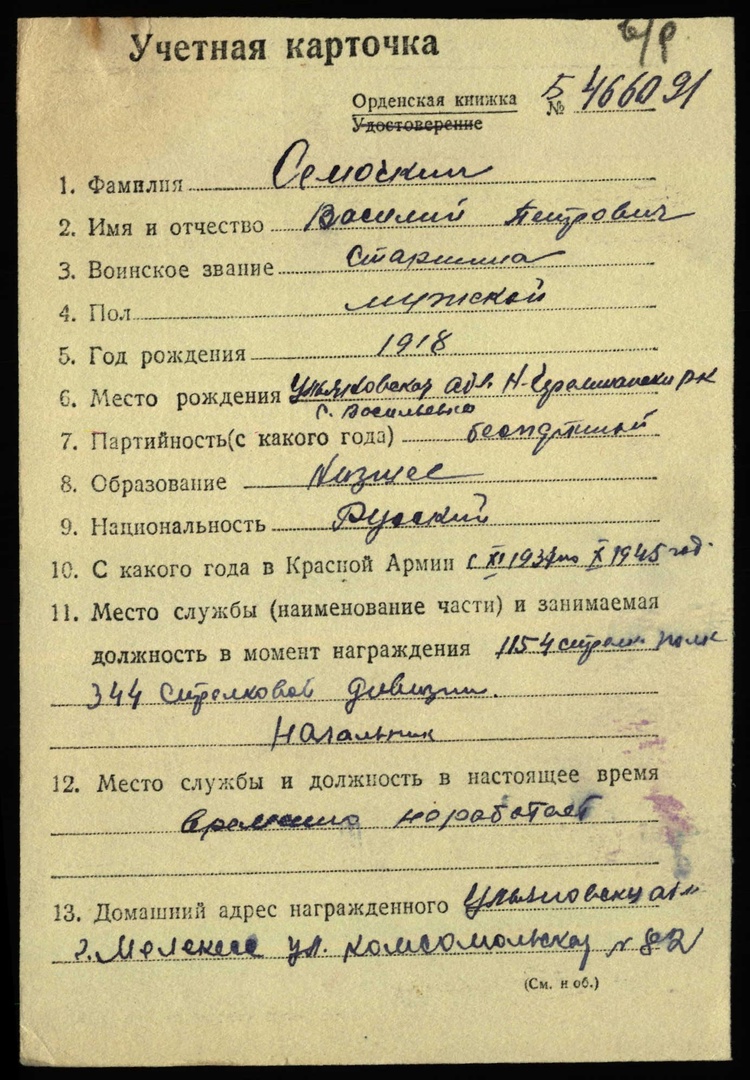 в/р
Учетная карточка
Орденская книжка Б № 466091
Удостоверение
1. Фамилия Семочкин
2. Имя и отчество Василий Петрович
3. Воинское звание Старшина
4. Пол мужской
5. Год рождения 1918
6. Место рождения Ульяновская обл. Н-Черемшански р-к
с. Васильевка
7. Партийность(с какого года)
8. Образование Низшее
9. Национальность Русский
10. С какого года в Красной Армии с XI 1937 по X 1945 год.
11. Место службы (наименование части) и занимаемая
должность в момент награждения 1154 стрелк полк
344 стрелковой дивизии.
Начальник
12. Место службы и должность в настоящее время
временно неработает
13. Домашний адрес награжденного
г. Мелекесс ул. Комсомольская № 82
(См. н об.)